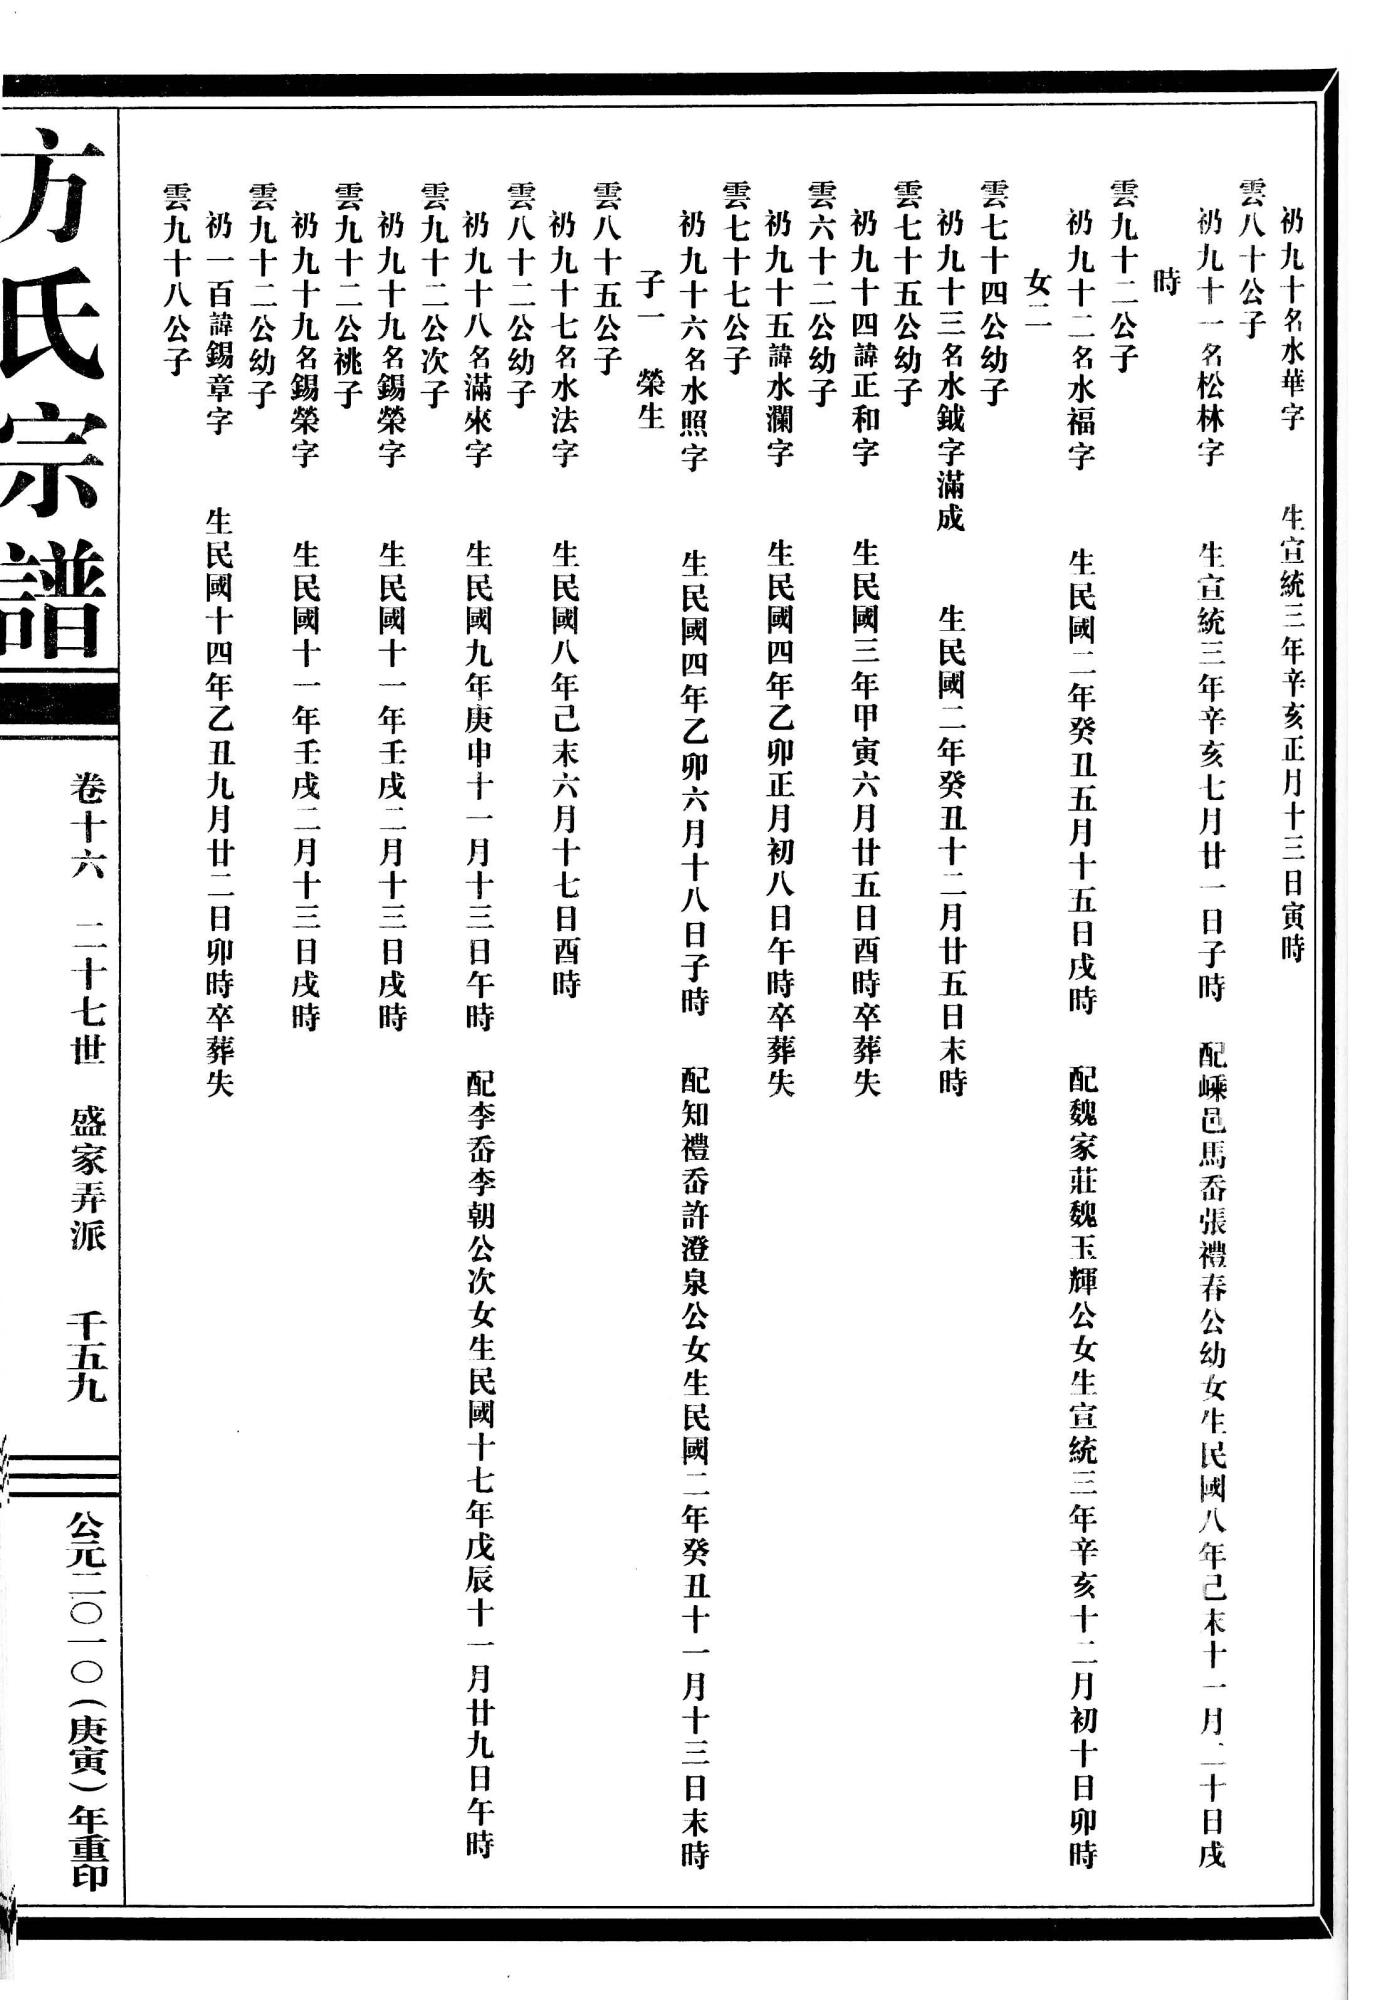 礽九十名水華字　　生宣統三年辛亥正月十三日寅時
雲八十公子
礽九十一名松林字　　生宣統三年辛亥七月廿一日子時　配嵊邑馬岙張禮春公幼女生民國八年己未十一月二十日戌
時
雲九十二公子
礽九十二名水福字　　生民國二年癸丑五月十五日戌時　配魏家莊魏玉輝公女生宣統三年辛亥十二月初十日卯時
女二
雲七十四公幼子
礽九十三名水鉞字滿成　　生民國二年癸丑十二月廿五日末時
雲七十五公幼子
礽九十四諱正和字　　生民國三年甲寅六月廿五日酉時卒葬失
雲六十二公幼子
礽九十五諱水瀾字　　生民國四年乙卯正月初八日午時卒葬失
雲七十七公子
礽九十六名水照字　　生民國四年乙卯六月十八日子時　配知禮岙許澄泉公女生民國二年癸丑十一月十三日末時
子一　榮生
雲八十五公子
礽九十七名水法字　　生民國八年己末六月十七日酉時
雲八十二公幼子
礽九十八名滿來字　　生民國九年庚申十一月十三日午時　配李岙李朝公次女生民國十七年戊辰十一月廿九日午時
雲九十二公次子
礽九十九名錫榮字　　生民國十一年壬戌二月十三日戌時
雲九十二公祧子
礽九十九名錫榮字　　生民國十一年壬戌二月十三日戌時
雲九十二公幼子
礽一百諱錫章字　　生民國十四年乙丑九月廿二日卯時卒葬失
雲九十八公子
方氏宗譜
卷十六　二十七世　盛家弄派　千五九
公元二〇一〇(庚寅)年重印